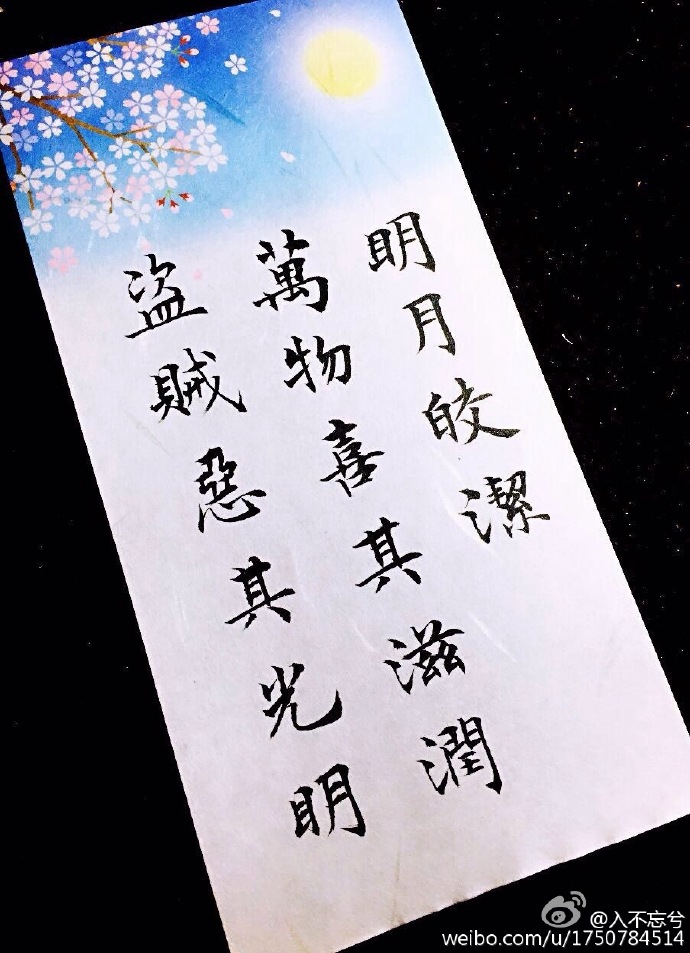 明月皎潔
萬物喜其滋潤
盜賊惡其光明
@入不忘兮
weibo.com/u/1750784514